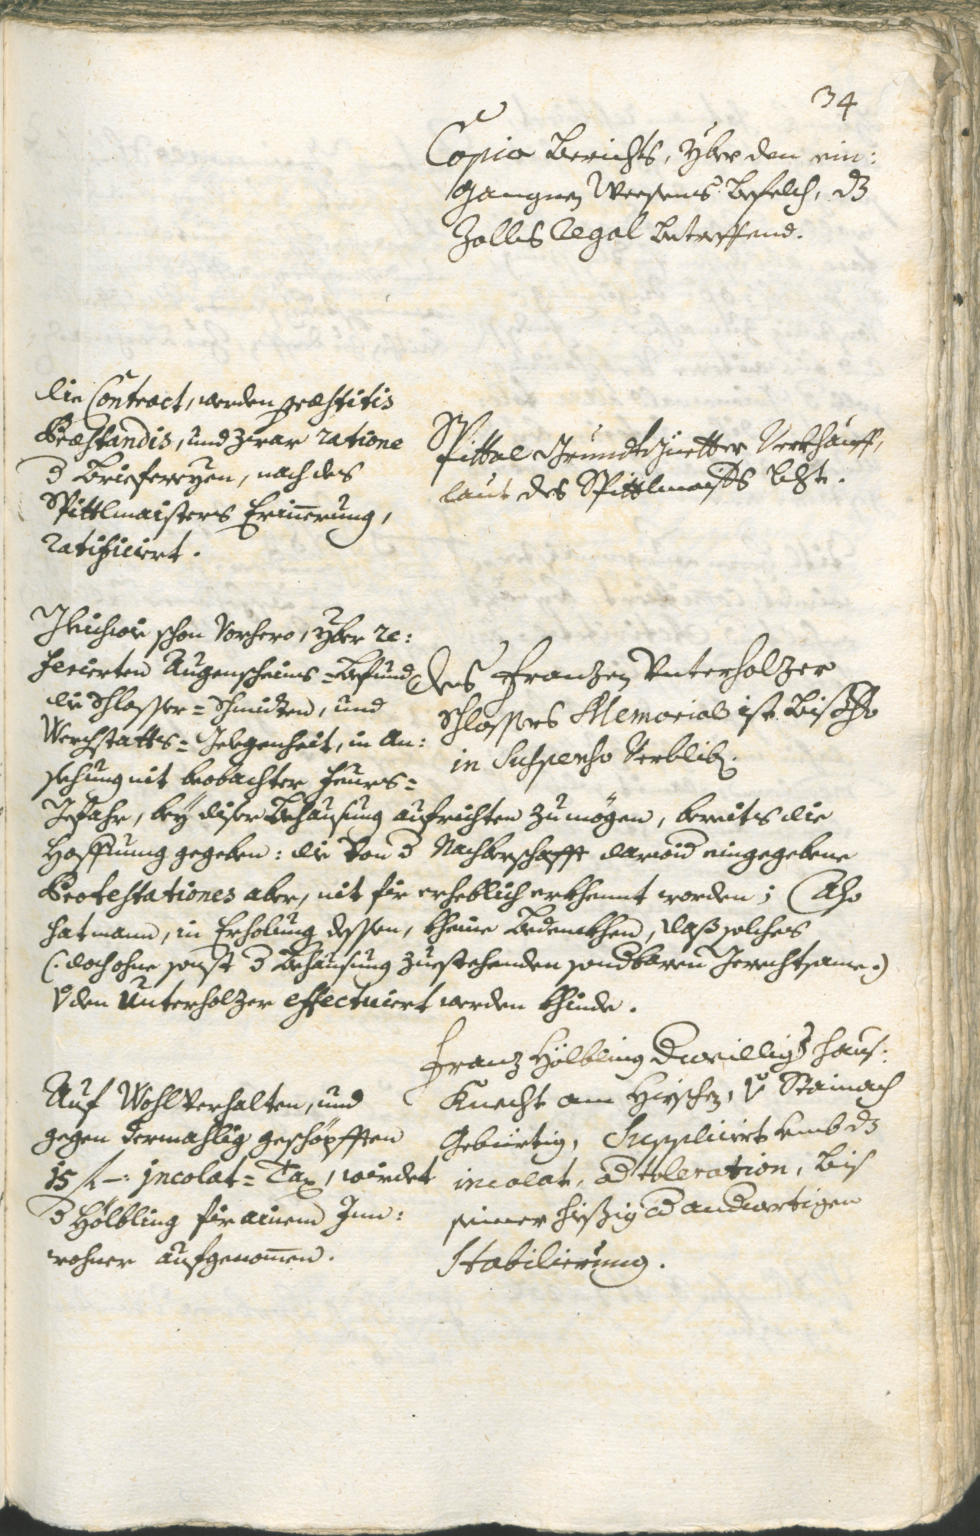 34
Copia Berichts, Yber den ein:
gangnen Weesens Befelch, dz
Zolls Regal Betreffend.
die Contract, werden præstitis
Præstandis, und zwar ratione
d Briefereyen, nach des
Spittlmaisters Erinerung,
ratificiert.
Spittal Grundtgüetter Verkhauff,
laut des Spittlmaisters
schon Vorhero, Yber re:
ferierten Augenscheins=Befund
die Schlosser=Schmidten, und
Werchstatts=Gelegenheit, in An:
sehung nit beobachter Feürs=
Gefahr, bey diser Behausung aufrichten zu mögen, bereits die
Hoffnung gegeben: die Von d Nachberschafft darwid eingegebene
Protestationes aber, nit für erheblich erkhennt worden; Also
hat mann, in Erholung dessen, kheine Bedenkhen, daß solches
(:doch ohne sonst d Behausung zuestehenden sondbaren Gerechtsame:)
den Unterholzer effectuiert werden khinde.
des Franzen Unterholzer
Schlossers Memorial ist Bishero
in Suspenso Verbliben.
Auf Wohlverhalten, und
gegen dermahlig geschöpfften
15 f –: incolat=Tax, würdet
d Hölbling für ainem Inn:
wohner aufgenomen.
Franz Hölbling dweillig haus:
Knecht am Hirschen, v Stainach
Gebürtig, Supplicirt umb dz
incolat, od toleration, bis
seiner hießig od andwertigen
Stabilierung.